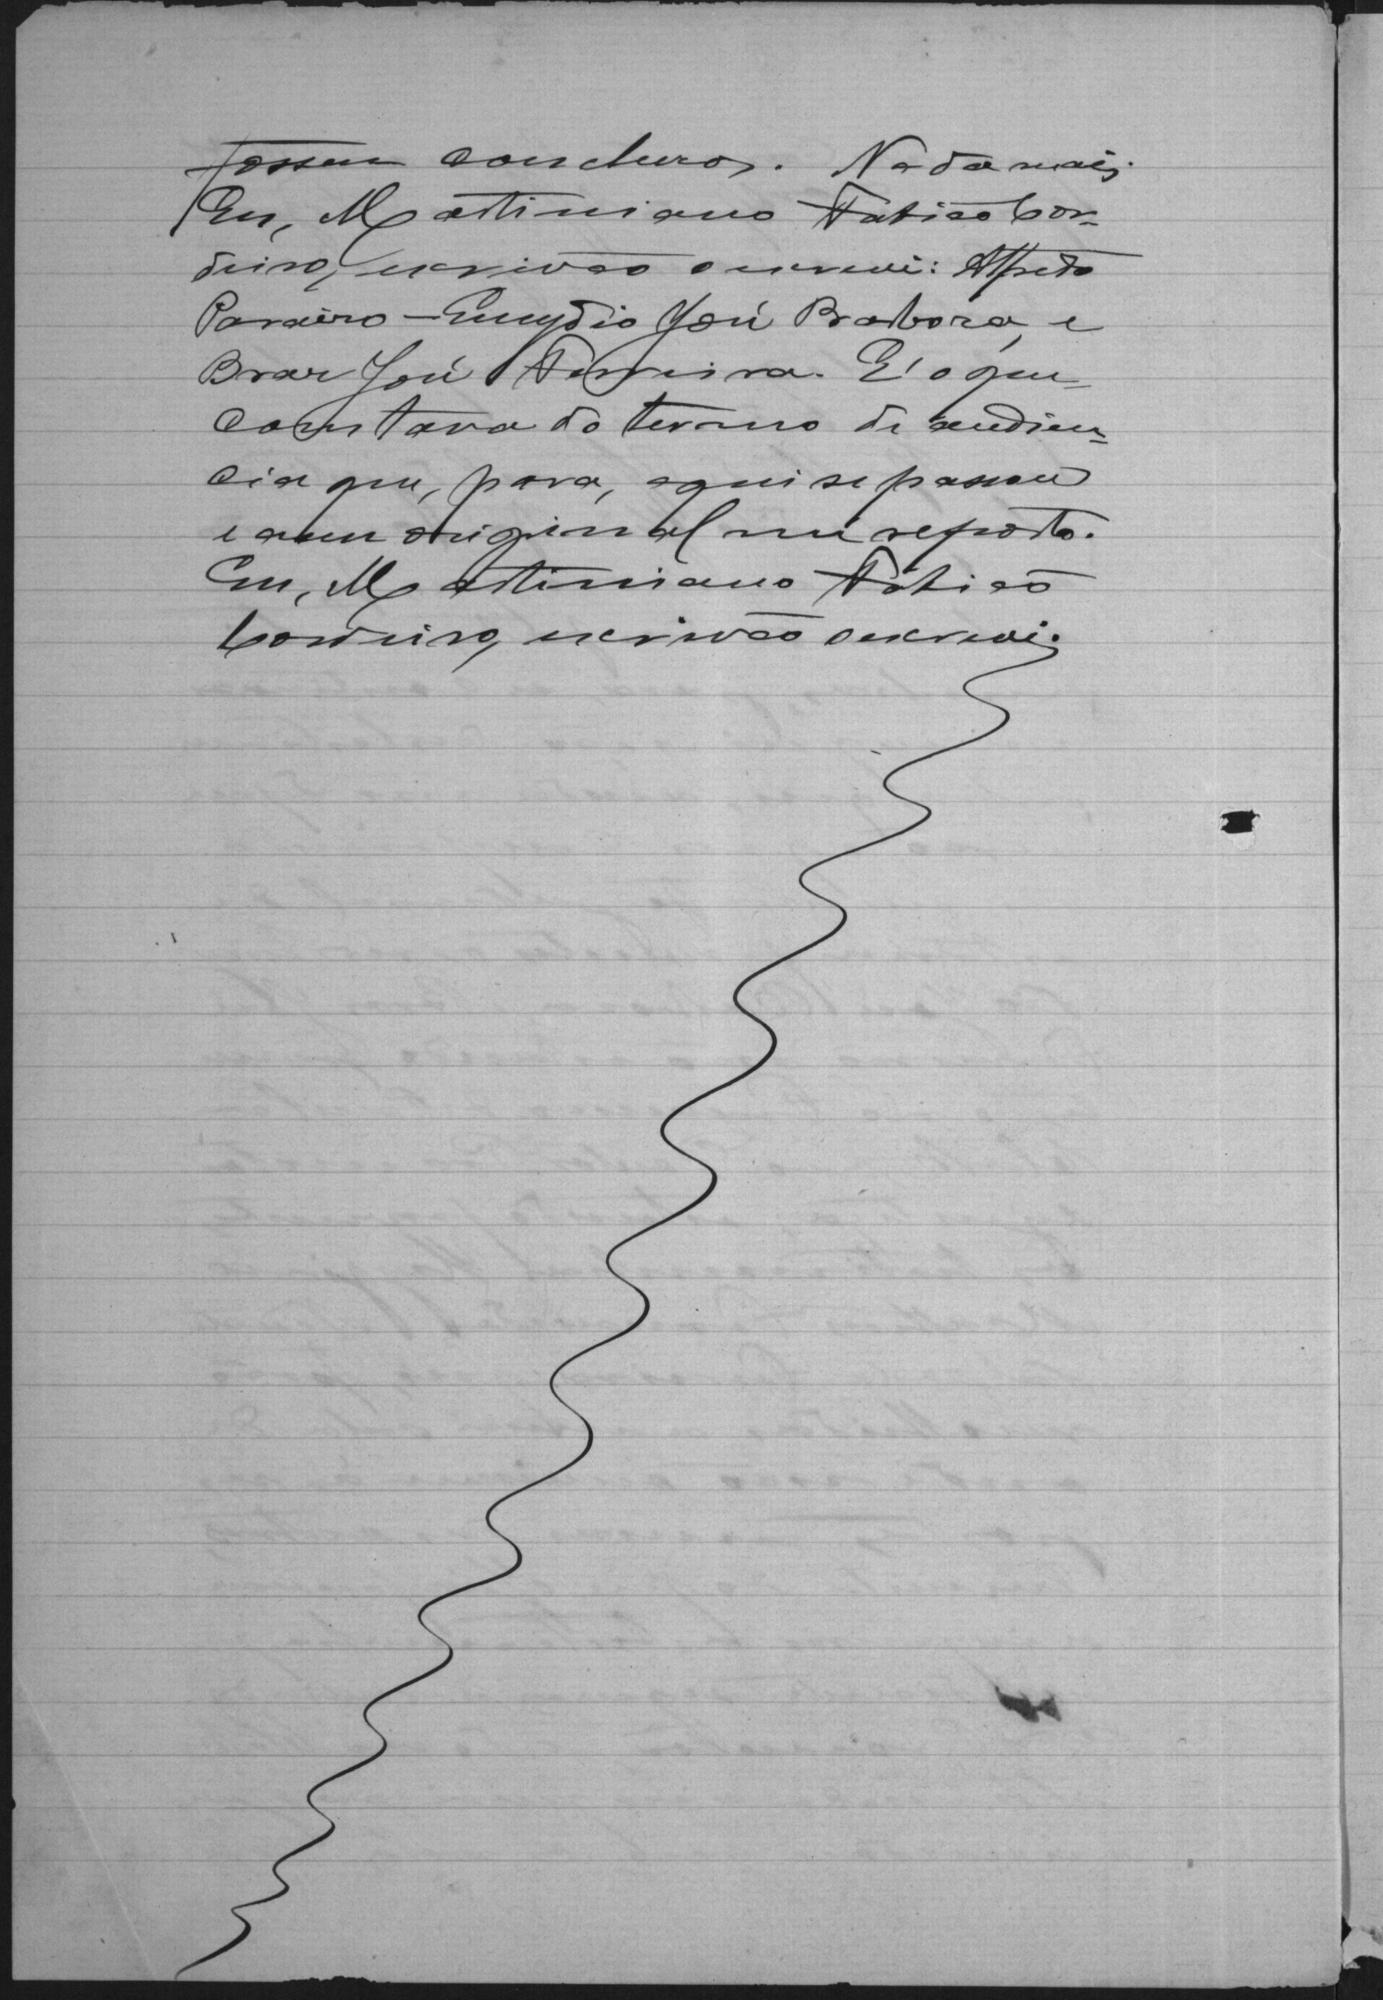 fossem concluzos. Nada mais.
Eu, Martiniano Fabião Cor-
deiro, escrivão o escrevi: Alfredo
Paraiso — Emygdio José Barbosa, e
Braz José Ferreira. É o que
constava do termo de audien-
cia que, para, aqui se passou
e a cuu original me reporto.
Eu, Martiniano Fabião
Cordeiro, escrivão o escrevi.